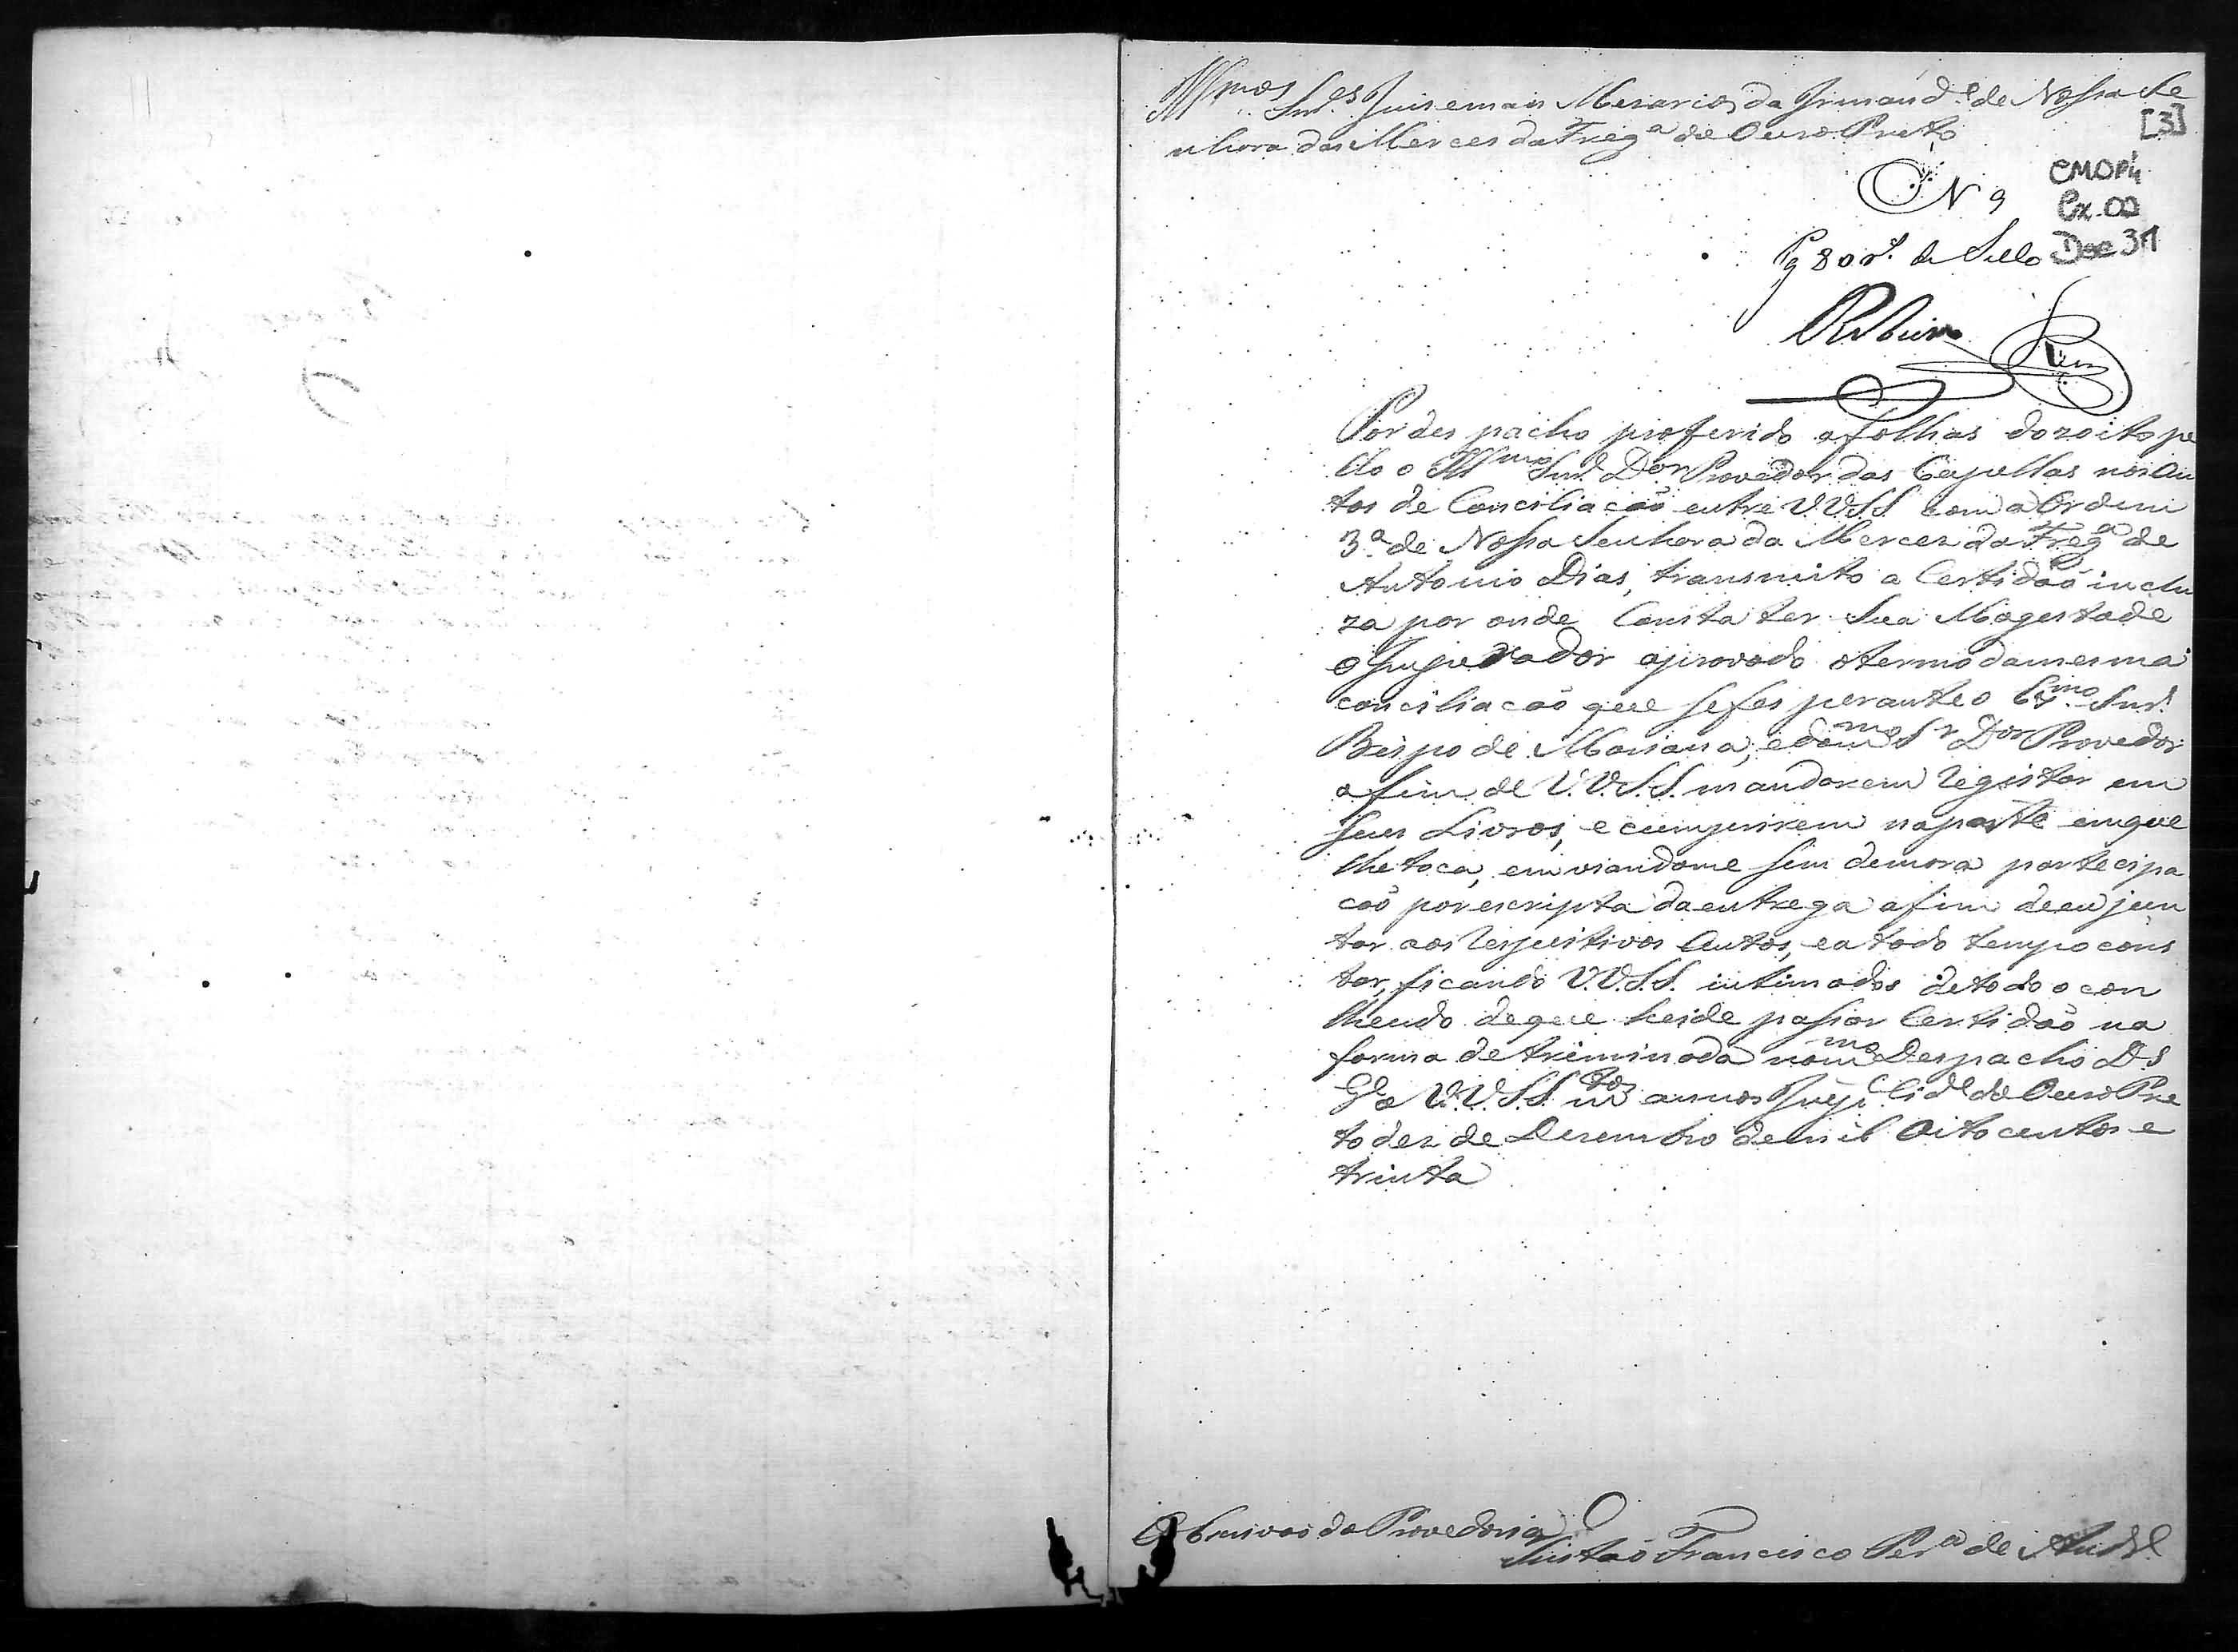 Illmos Snres Juis e mais Mesarios da Irmande de Nossa Se
nhora das Merces da Frega de Ouro Preto
[3]
CMOP
Cx. 02
Doc 31
N 9
Pg 80 rs de Sello
Ribeiro
Por despacho proferido a folhas dozoito pe
llo o Illmo Snr Dor Provedor das Capellas nos Au
tos de Conciliacaõ entre V.V.S.S. com a Ordem
3.a de Nossa Senhora da Merces da Frega de
Antonio Dias, transmito a Certidaõ inclu
za por onde Consta ter Sua Magestade
o Imperador aprovado o termo da mesma
conciliacaõ que se fes perante o Exmo Snr
Bispo de Mariana, e do mmo Sr Dor Provedor
a fim de V.V.S.S. mandarem registar em
seus Livros, e cumprirem na parte em que
lhe toca, enviandome sem demora partecipa
caõ por escripta da entrega a fim de eu jun
tar aos respeitivos Autos, e a todo tempo cons
tar, ficando V.V.S.S. intimados de todo o con
theudo de que heide passar Certidaõ na
forma detriminada no mmo Despacho Ds
Ge a V.V.S.S. ms annos Impl Cide de Ouro Pre
to dez de Dezembro de mil Oito centos e
trinta
O Escrivaõ da Provedoria
Tristaõ Francisco Pera de Andre